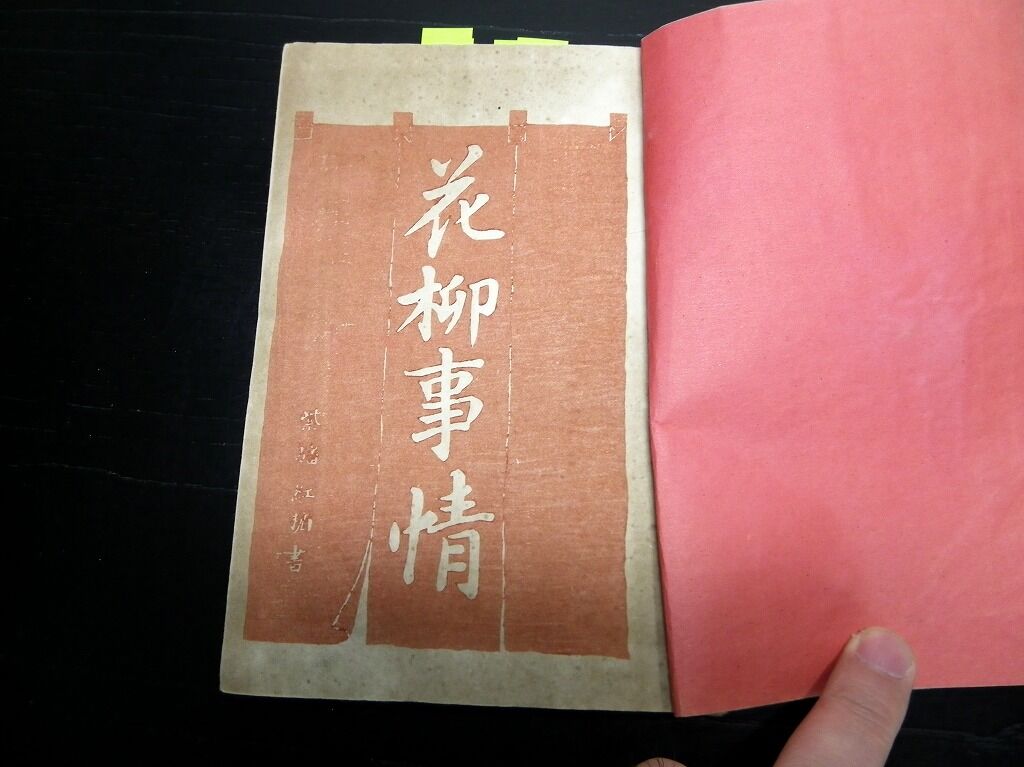 花柳事情
紅 書